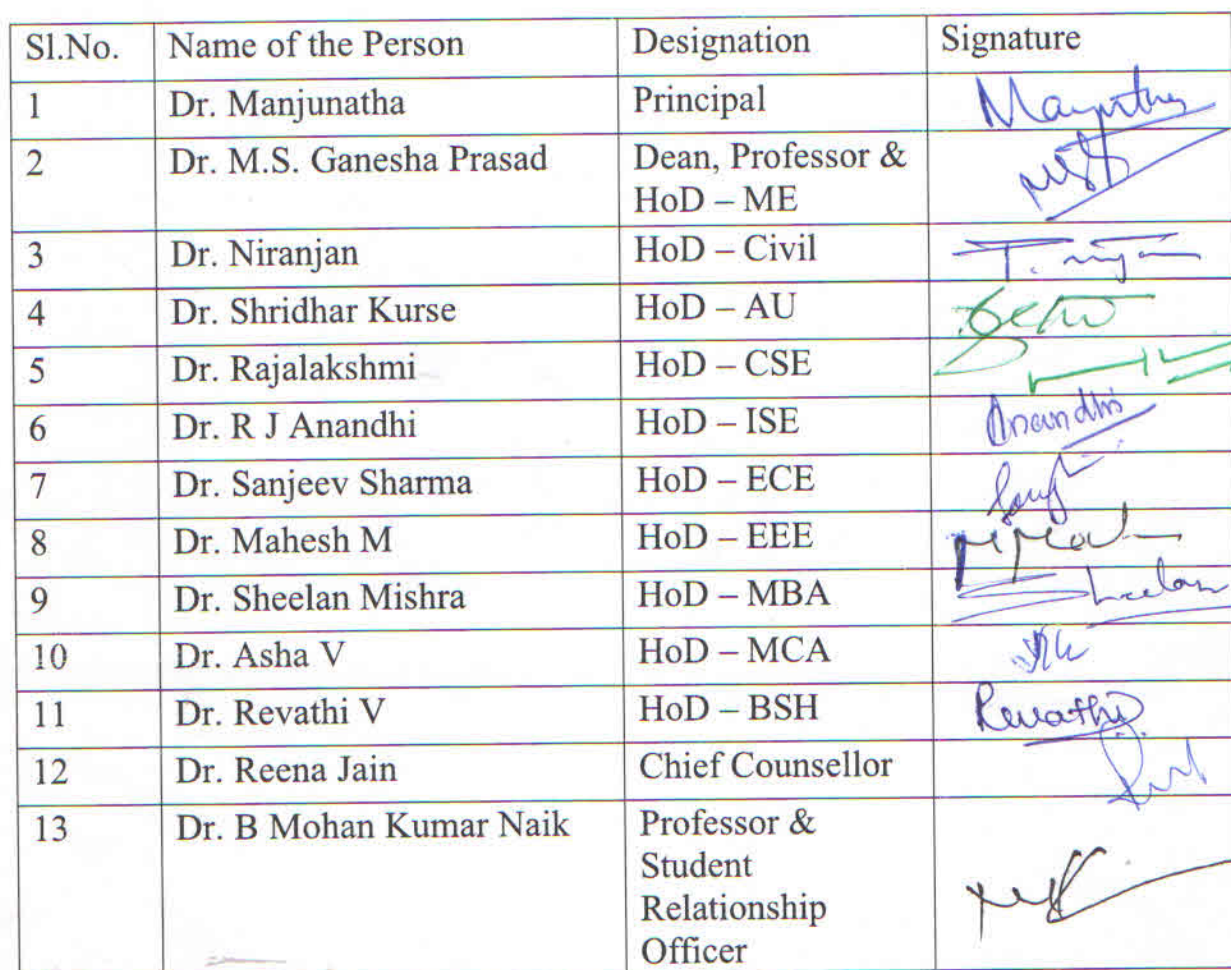 Sl.No. Name of the Person Designation Signature
1 Dr. Manjunatha Principal
2 Dr. M.S. Ganesha Prasad Dean, Professor &
HoD – ME
3 Dr. Niranjan HoD – Civil
4 Dr. Shridhar Kurse HoD – AU
5 Dr. Rajalakshmi HoD – CSE
6 Dr. R J Anandhi HoD – ISE Anandhi
7 Dr. Sanjeev Sharma HoD – ECE
8 Dr. Mahesh M HoD – EEE
9 Dr. Sheelan Mishra HoD – MBA Sheelan
10 Dr. Asha V HoD – MCA
11 Dr. Revathi V HoD – BSH Revathi
12 Dr. Reena Jain Chief Counsellor
13 Dr. B Mohan Kumar Naik Professor &
Student
Relationship
Officer